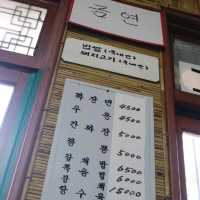 금연
밥쌀 (국내산)
돼지고기 (국내산)
짜장면 4500
우동 4500
간짜장 5000
짬뽕 5000
잡채밥 6500
6000
탕수육 15000